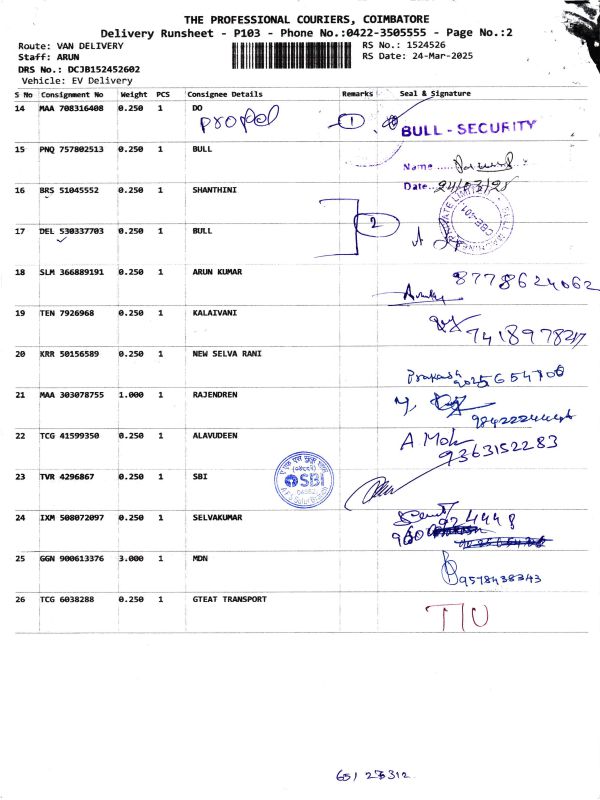 THE PROFESSIONAL COURIERS, COIMBATORE
Delivery Runsheet - P103 - Phone No.:0422-3505555 - Page No.:2
Route: VAN DELIVERY RS No.: 1524526
Staff: ARUN RS Date: 24-Mar-2025
DRS No.: DCJB152452602
Vehicle: EV Delivery
S No Consignment No Weight PCS Consignee Details Remarks Seal & Signature
14 MAA 708316408 0.250 1 DO
propel 1
BULL - SECURITY
15 PNQ 757802513 0.250 1 BULL
Name
16 BRS 51045552 0.250 1 SHANTHINI
Date.. 24/03/25
17 DEL 530337703 0.250 1 BULL 2
CBE-101
18 SLM 366889191 0.250 1 ARUN KUMAR
8778624062
19 TEN 7926968 0.250 1 KALAIVANI
7418978217
20 KRR 50156589 0.250 1 NEW SELVA RANI
Prakash
9025654706
21 MAA 303078755 1.000 1 RAJENDREN
22 TCG 41599350 0.250 1 ALAVUDEEN
9363152283
23 TVR 4296867 0.250 1 SBI
SBI
24 IXM 508072097 0.250 1 SELVAKUMAR
25 GGN 900613376 3.000 1 MDN
9578438343
26 TCG 6038288 0.250 1 GTEAT TRANSPORT